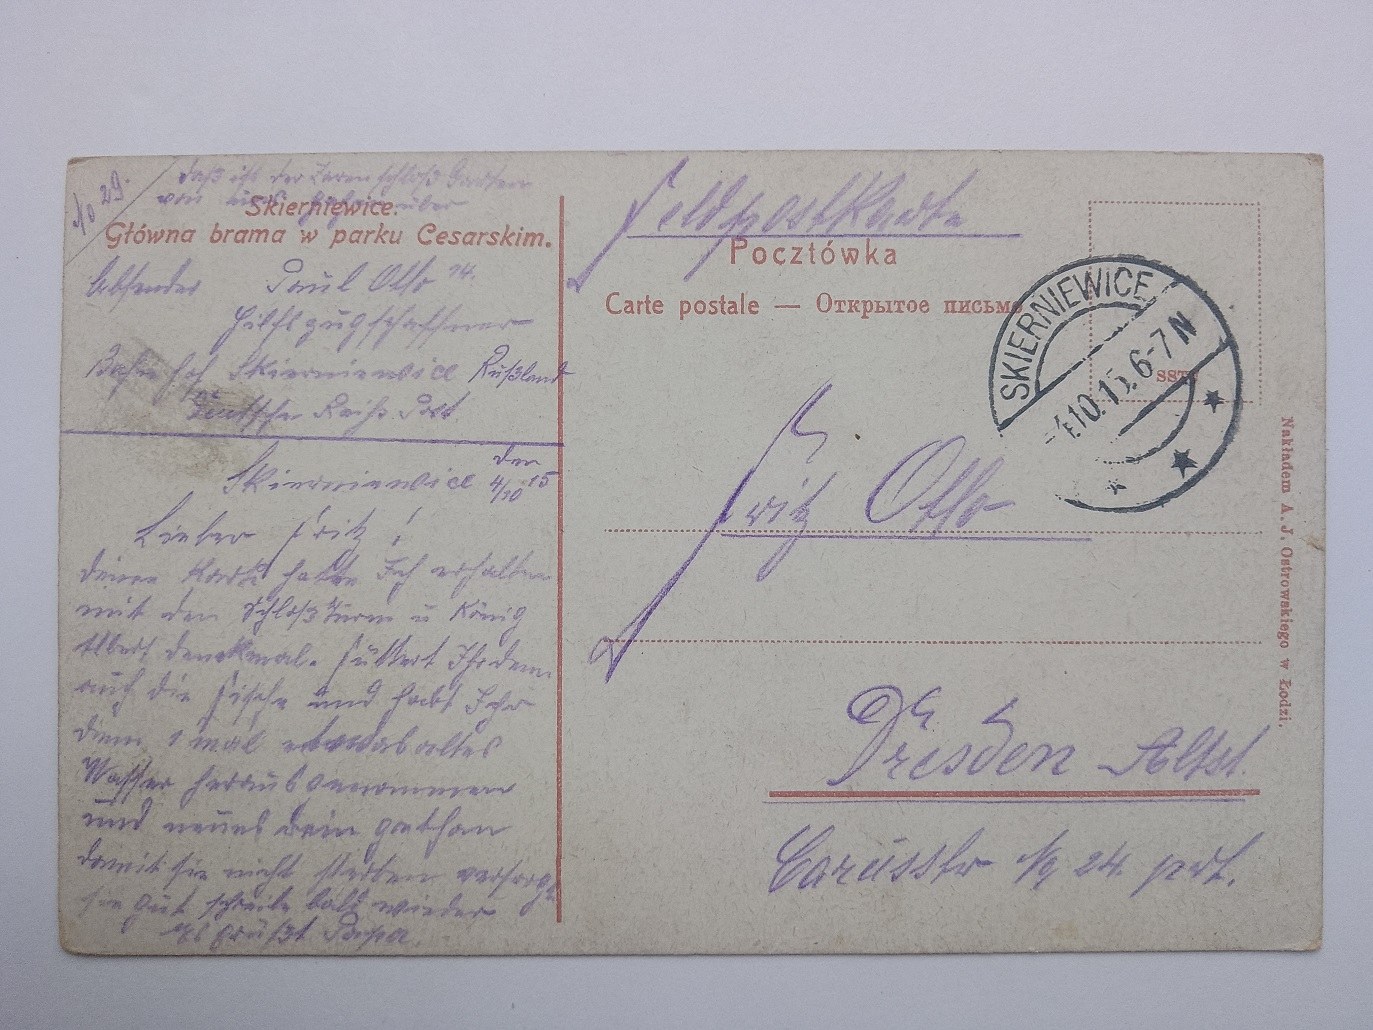 No 29.
Daß ist der Zaren schloß
von
über
Skierniewice.
Główna brama w parku Cesarskim.
Absender Paul Otto 14.
Hilfszugschaffner
Bahn hof Skierniewice Rußland
Deutsche Reichs Post.
Skierniewice den 4/10 15
Lieber Fritz!
deine Karte hatte Ich erhalten
mit den Schloß Turm u König
Albert denekmal. füttert Ihr den
auch die Fische und habt Ihr
den 1 mal etwas altes
Wasser herausgenommen
und neues drin gethan
damit sie nicht starben versorgt
sie gut schreibe bald wieder
es grüßt Papa.
Feldpostkarte
Pocztówka
Carte postale — Открытое письмо
SKIERNIEWICE
4.10.15. 6-7 N
Fritz Otto
Dresden Altst.
Carusstr No 24. prt.
Nakładem A. J. Ostrowskiego w Łodzi.